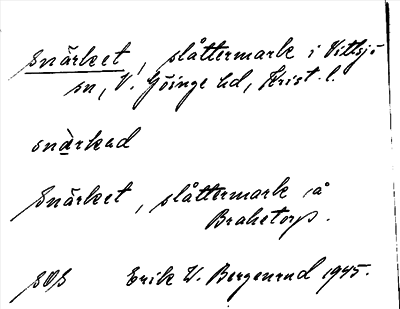 Snärket, slåttermark i Vittsjö
sn, V. Göinge hd, Krist. l.
snärkad
Snärket, slåttermark å
Brahetorp.
SOS Erik W. Bergenrud 1945.